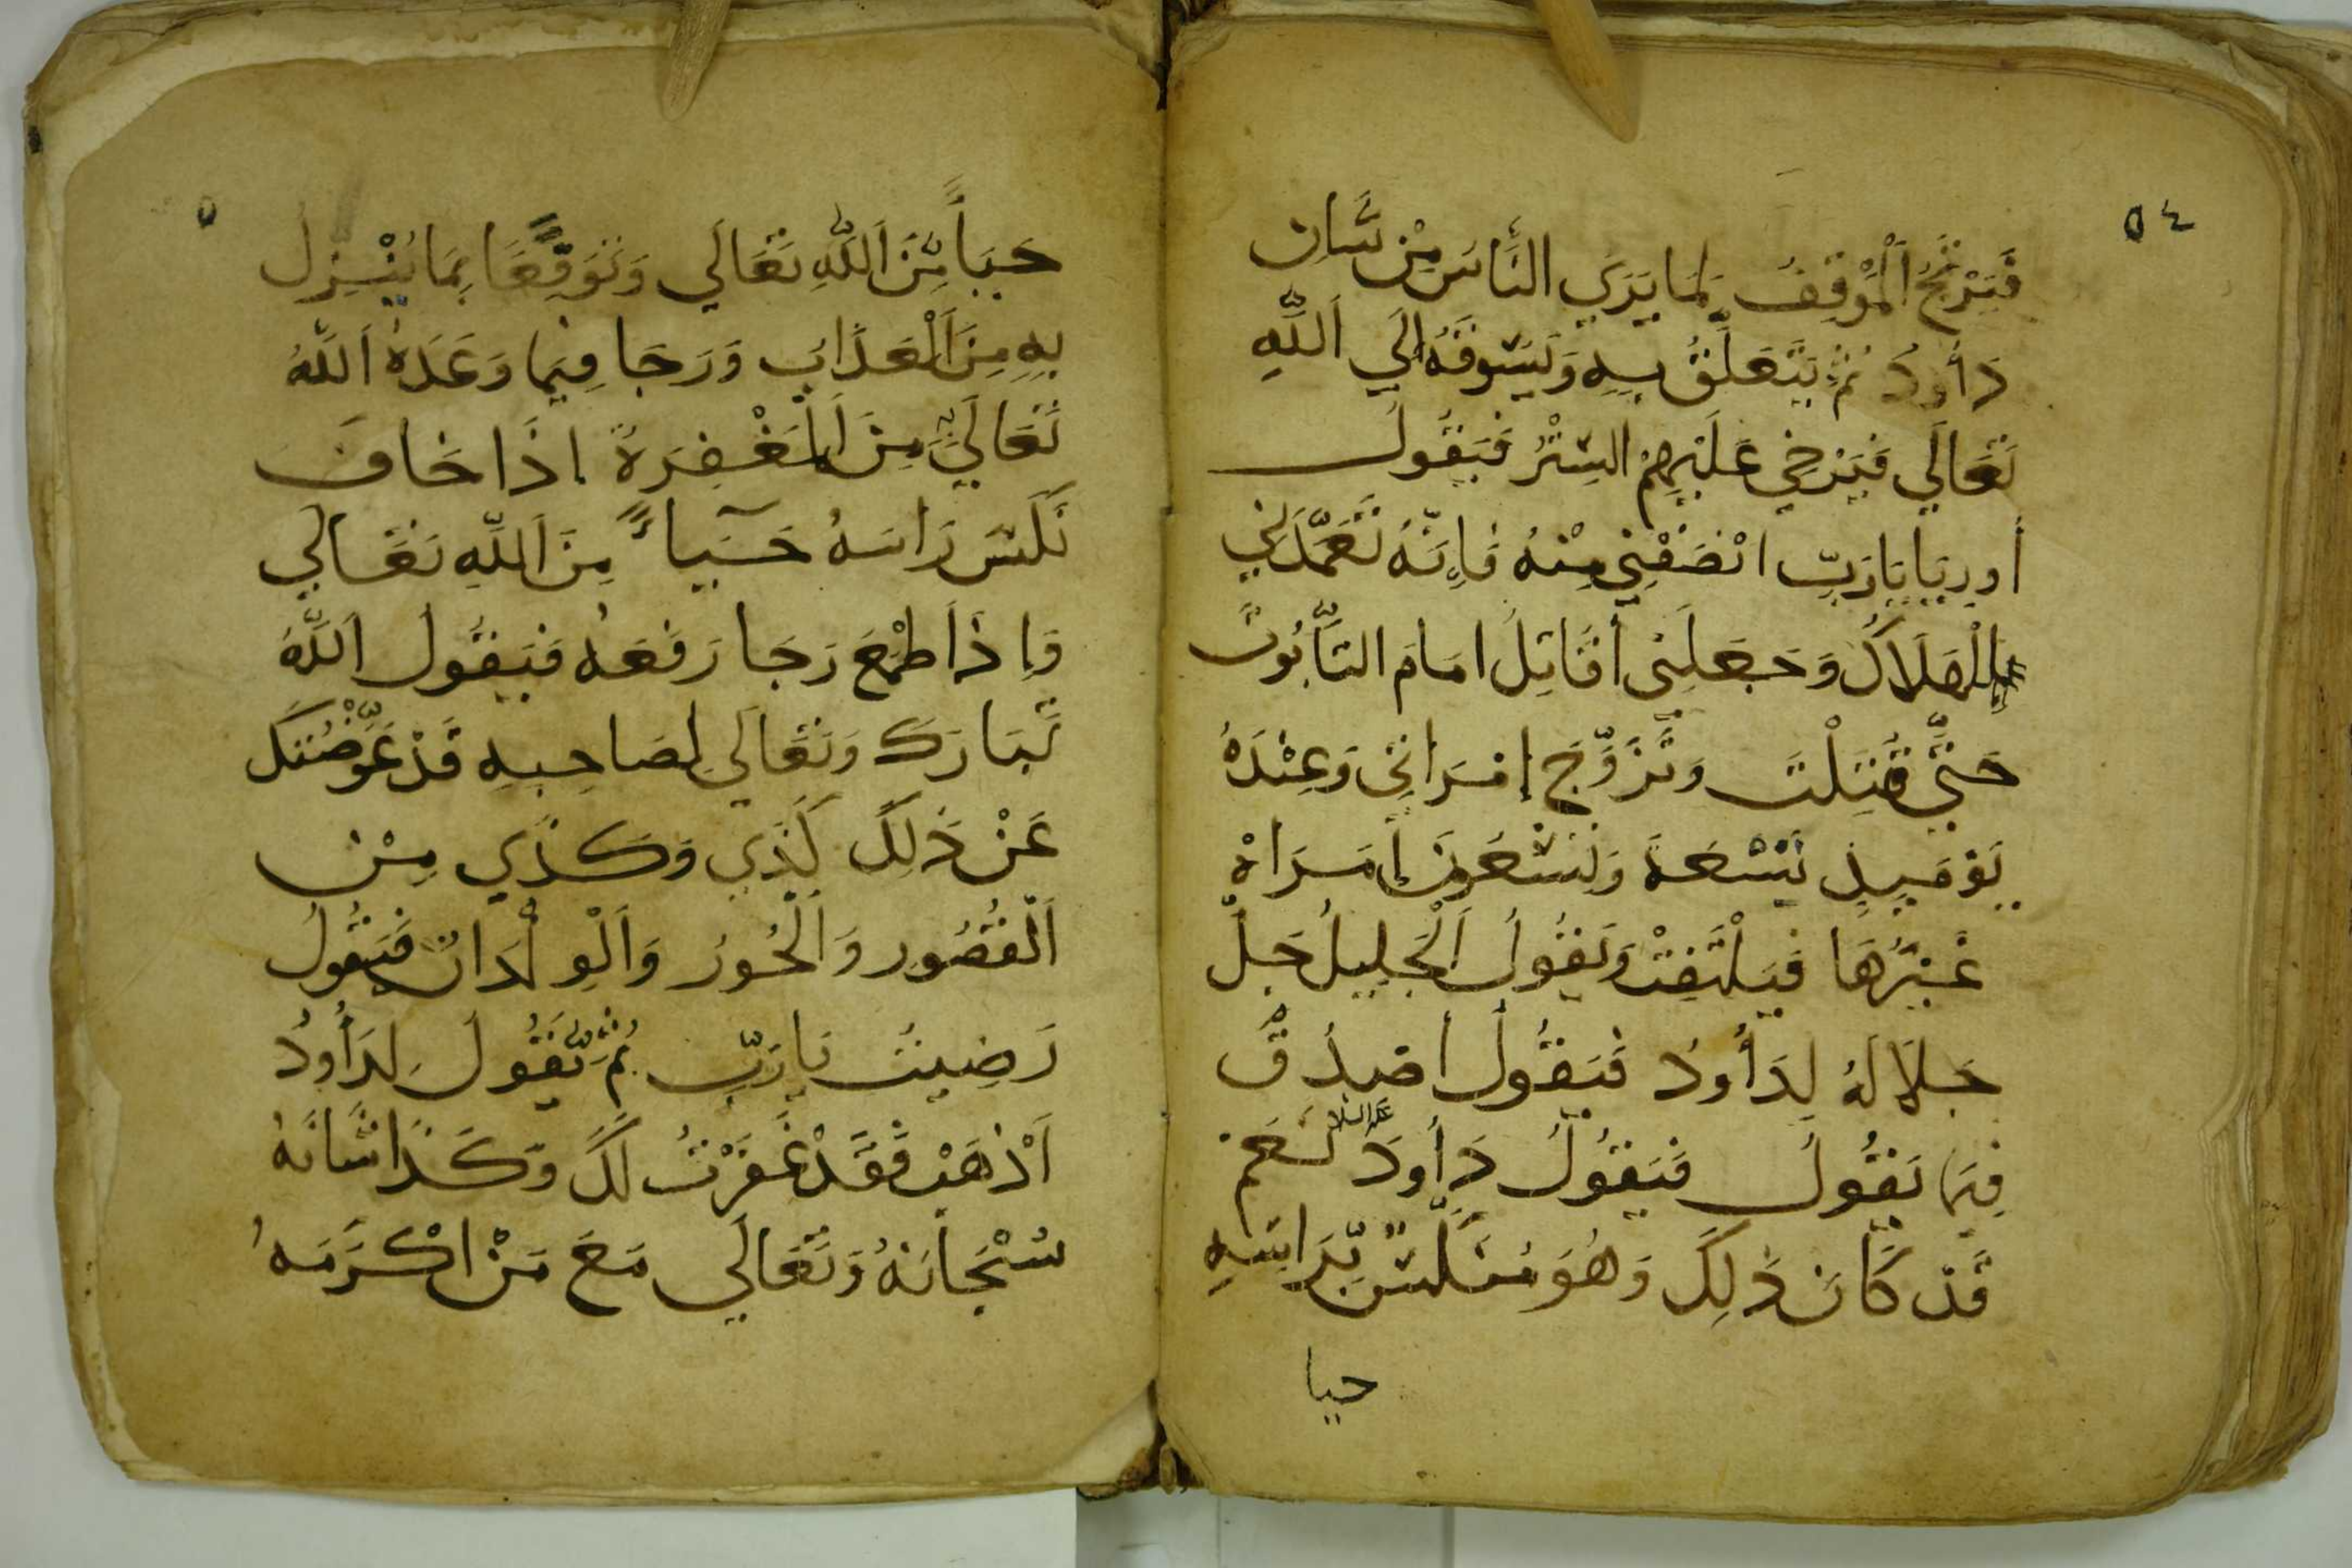 ٥٤
فَيَرْتَجُّ الْمَوْقِفُ لِمَا يَرَي النَّاسُ مِنْ شَانِ
دَاُودُ ثُمَّ يَتَعَلَّقُ بِهِ وَيَسُوقَهُ اِلَي اَللَّهِ
تَعَالَي فَيَرْخِي عَلَيْهِمْ السِتْرُ فَيَقُولُ
أورِيَا يَا رَبِّ انْصَفْنِي مِنْهُ فَاِنَّهُ تَعَمَّدَنِي
بِالْهَلَاكُ وَجَعَلَنِي أقَاتِلُ امَامَ التَّابُوتْ
حَتَّي قُتِلْتَ وَتَزَوَّجَ إمْرَاتِي وَعِنْدَهُ
يَوْمَيِذٍ تِسْعَةَ وَتِسْعَونَ إمَرَاهْ
غَيْرُهَا فَيَلْتَفِتْ وَيَقُولُ اَلْجَلِيلُ جَلَّ
جَلَالَهُ لِدَاُودَ فَيَقُولُ أصَدَقَ
فِيمَا يَقُولُ فَيَقُولُ دَاُودَ عليه السلام نَعَمْ
قَدْ كَانَ ذَلِكَ وَهُوَ مُنَكِّسٌ بِّرَاسِهِ
حيا
حَيَاً مِّنَ اَللَّهِ تَعَالَي وَتَوَقُّعًا بِمَا يُنْزِل
بِهِ مِنَ اَلْعَذَابِ وَرَجَا فِيمَا وَعَدَهُ اَللَّهُ
تَعَالَي مِنَ اَلمَغْفِرَةُ اذَا خَافَ
نَكَسَ رَاسَهُ حَيَآءً مِنَ اَللَّهِ تَعَالَي
وَاِذَا طَمَعَ رَجَا رَفَعَهُ فَيَقُولُ اَللَّهُ
تَبَارَكَ وَتَعَالَي لِصَاحِبِهِ قَدْ عَوَّضْتُكَ
عَنْ ذَلِكَ كَذَي وَكَذَي مِنْ
اَلْقُصُورِ وَالْحُورُ وَاَلْوِلْدَانُ فَيَقُولُ
رَضِيتُ يَا رَبِّ ثُمَّ يَّقُولُ لِدَاُودُ
اَذْهَبْ فَقَدْ غَفَرْتُ لَكَ وَكَذَا شَانَهُ
سُبْحَانَهُ وَتَعَالَي مَعَ مَنْ اكْرَمَهُ